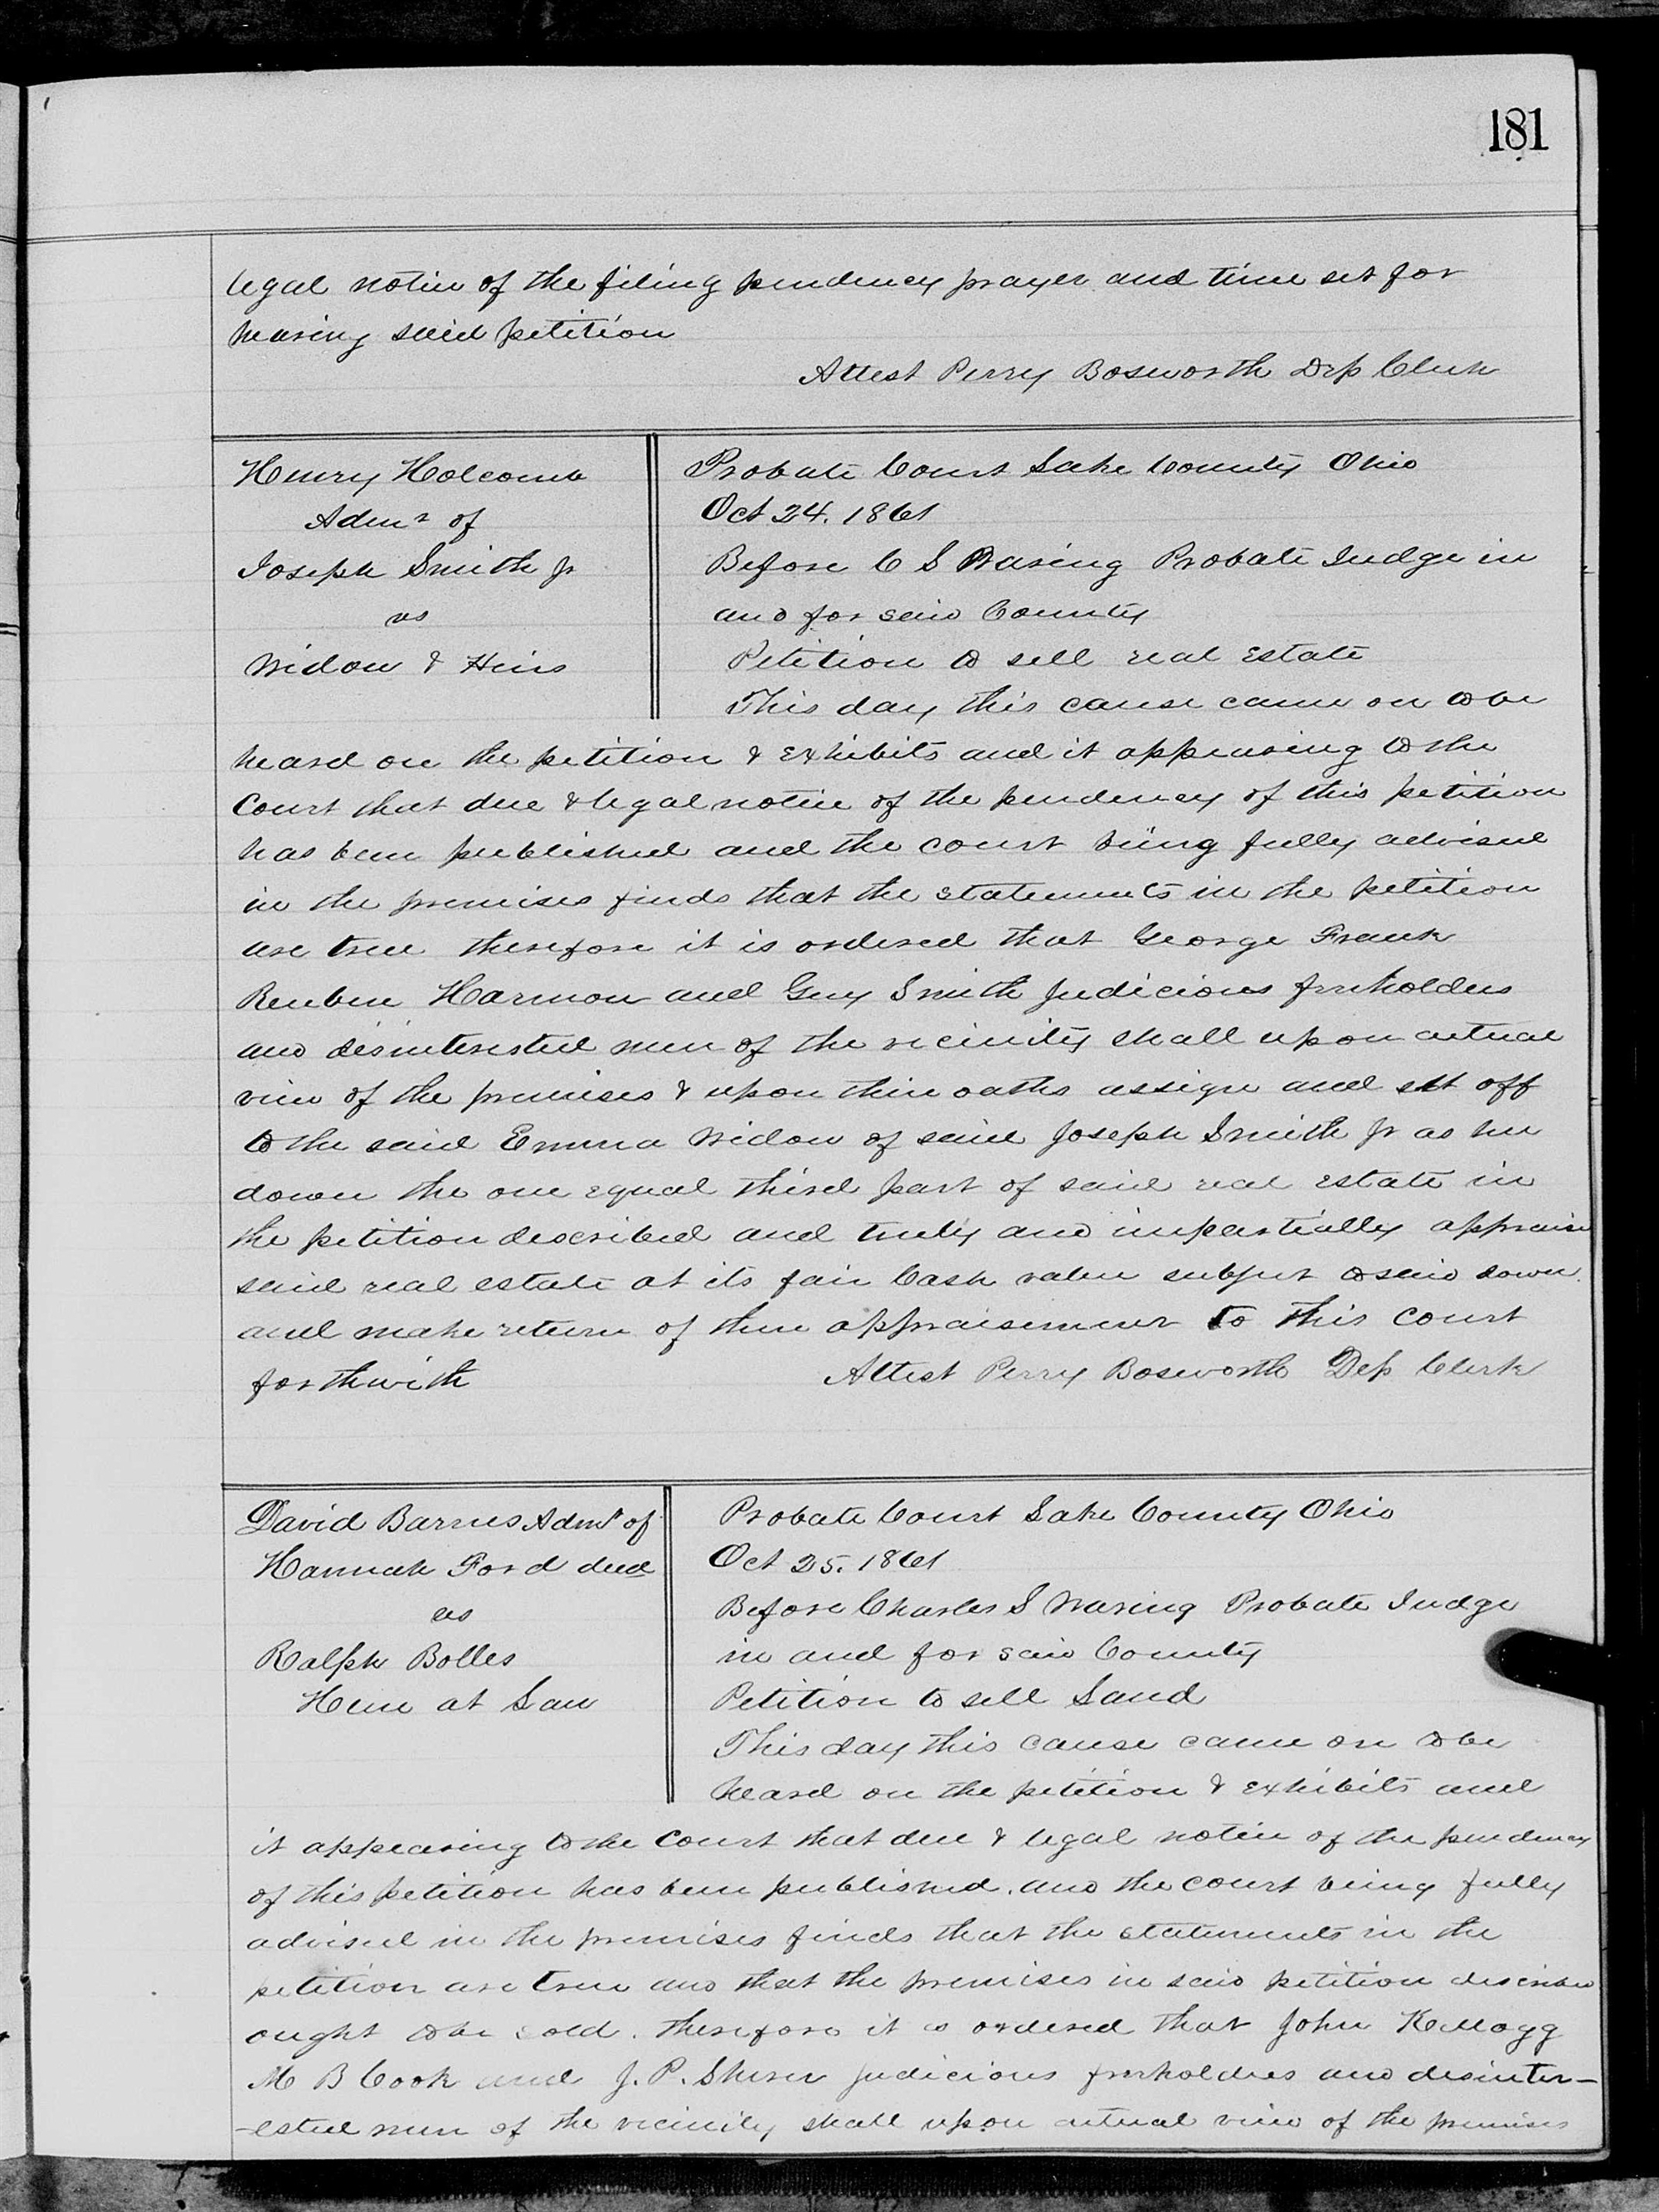 181
legal notice of the filing pendency prayer and time set for
hearing said petition
Attest Perry Bosworth Dep Clerk
Henry Holcomb
Admr of
Joseph Smith Jr
vs
Widow & Heirs
Probate Court Lake County Ohio
Oct 24. 1861
Before C S Waring Probate Judge in
and for said County
Petition to sell real Estate
This day this cause came on to be
heard on the petition & exhibits and it appearing to the
Court that due & legal notice of the pendency of this petition
has been published and the court being fully advised
in the premises finds that the statements in the petition
are true therefore it is ordered that George Frank
Reuben Harmon and Guy Smith Judicious freeholders
and disinterested men of the vicinity shall upon actual
view of the premises & upon their oaths assign and set off
to the said Emma Widow of said Joseph Smith Jr as her
dower the one equal third part of said real estate in
the petition described and truly and impartially appraise
said real estate at its fair Cash value subject to said dower.
and make return of their appraisement to this court
forthwith
Attest Perry Bosworth Dep Clerk
David Barnes Admr of
Hannah Ford decd
vs
Ralph Bolles
Heir at Law
Probate Court Lake County Ohio
Oct 25. 1861
Before Charles S Waring Probate Judge
in and for said County
Petition to sell Land
This day this cause came on to be
heard on the petition & exhibits and
it appearing to the Court that due & legal notice of the pendency
of this petition has been published. and the court being fully
advised in the premises finds that the statements in the
petition are true and that the premises in said petition described
ought to be sold. therefore it is ordered that John Kellogg
M B Cook and J. P. Judicious freeholders and disinter-
-ested men of the vicinity shall upon actual view of the premises